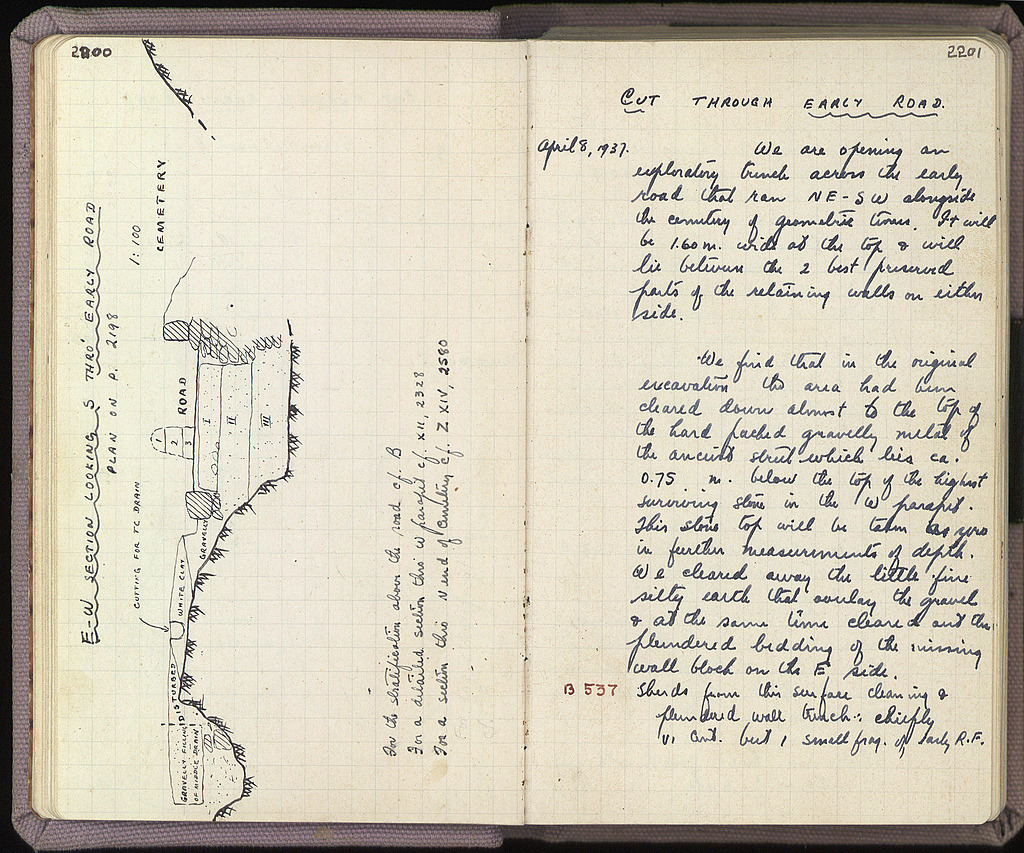 2200
E-W SECTION LOOKING S THRO' EARLY ROAD
PLAN ON P. 2198
1:100
CEMETERY
CUTTING FOR TC DRAIN
ROAD
1
2
3
I
II
III
GRAVELLY
WHITE CLAY
DISTURBED
GRAVELLY FILLING
OF MIDDLE DRAIN
For the stratification above the road cf. B
For a detailed section thro' W parapet cf. XII, 2328
For a section thro N end of cemetery cf. Z XIV, 2580
2201
CUT THROUGH EARLY ROAD.
April 8, 1937.
We are opening an
exploratory trench across the early
road that ran NE-SW alongside
the cemetery of geometric times. It will
be 1.60 m. wide at the top & will
lie between the 2 best preserved
parts of the retaining walls on either
side.
We find that in the original
excavation this area had been
cleared down almost to the top of
the hard packed gravelly metal of
the ancient street which lies ca.
0.75 m. below the top of the highest
surviving stone in the W parapet.
This stone top will be taken as zero
in further measurements of depth.
We cleared away the little fine
silty earth that overlay the gravel
& at the same time cleared out the
plundered bedding of the missing
wall block on the E side.
B 537 Sherds from this surface cleaning &
plundered wall trench: chiefly
VI cent. but 1 small frag. of early R.F.